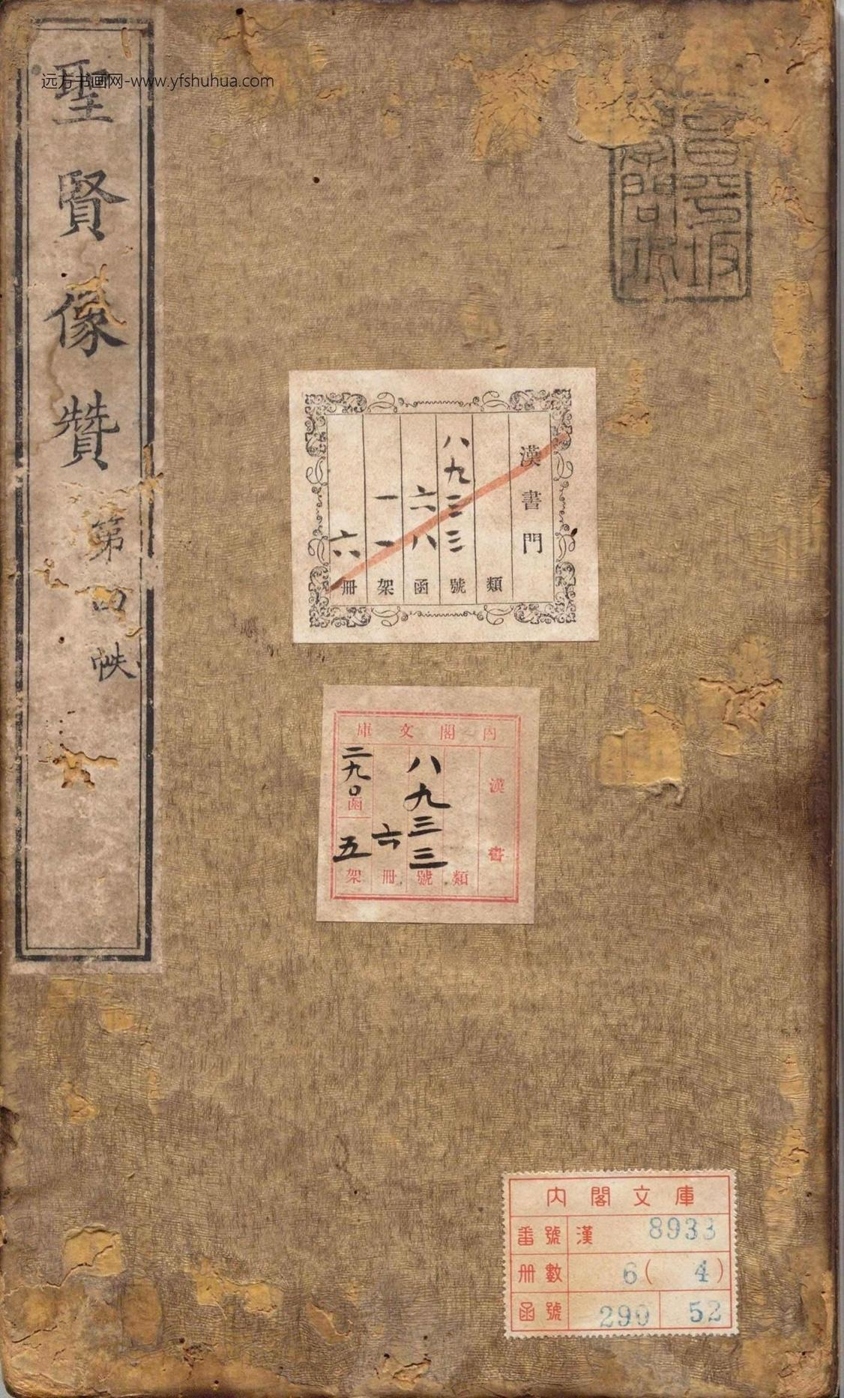 远方书画网-www.yfshuhua.com
聖賢像贊
第四帙
昌平坂
學問所
漢書門
類
八九三三號
六八函
一一架
六冊
內閣文庫
漢書
類
八九三三號
六冊
二九〇函
五架
內閣文庫
番號 漢 8933
冊數 6 ( 4 )
函號 290 52